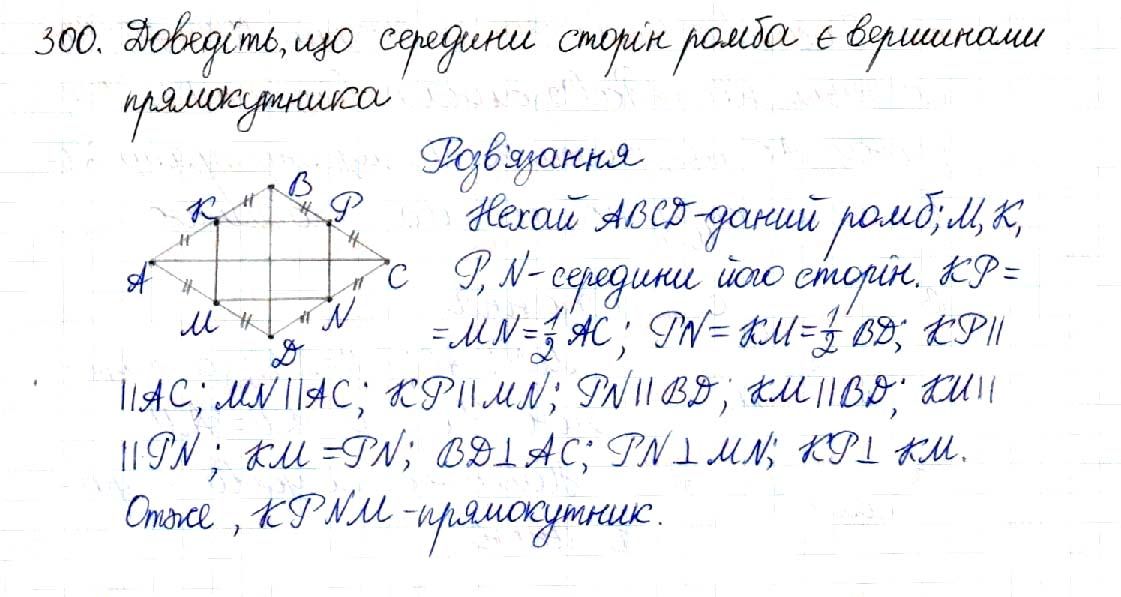 300. Доведіть, що середини сторін ромба є вершинами
прямокутника
Розв'язання
B
K P
A C
M N
D
Нехай ABCD-даний ромб; M, K,
P, N- середини його сторін. KP =
= MN = 1/2 AC; PN = KM = 1/2 BD; KP ||
|| AC; MN || AC; KP || MN; PN || BD; KM || BD; KM ||
|| PN; KM = PN; BD ⊥ AC; PN ⊥ MN; KP ⊥ KM.
Отже, KPNM -прямокутник.